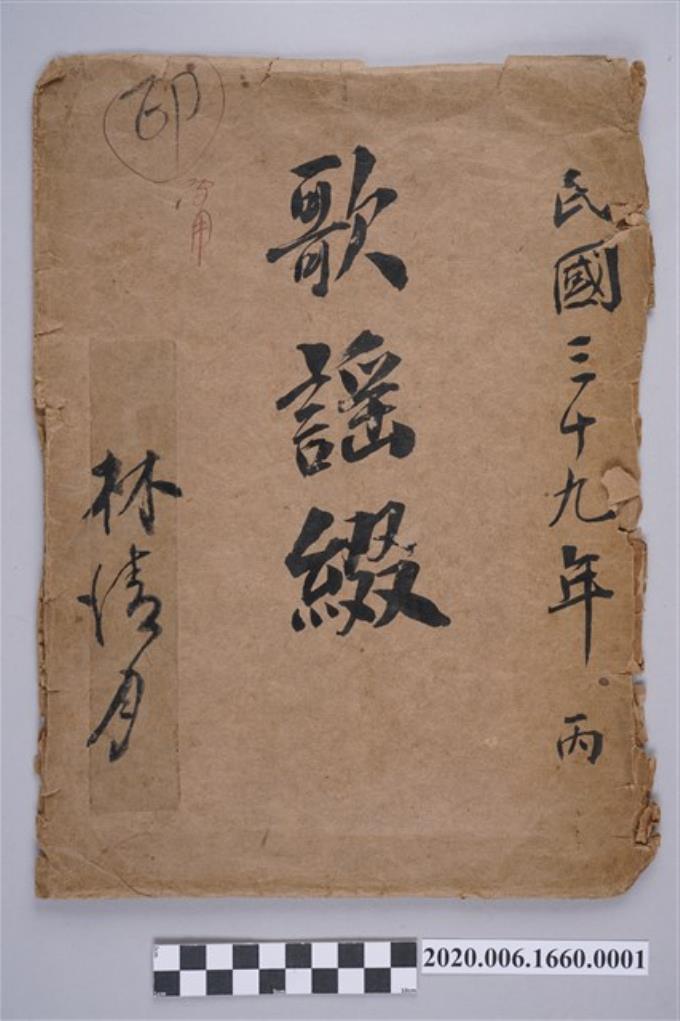 民國三十九年 丙
歌謠綴
林清月
印
2020.006.1660.0001